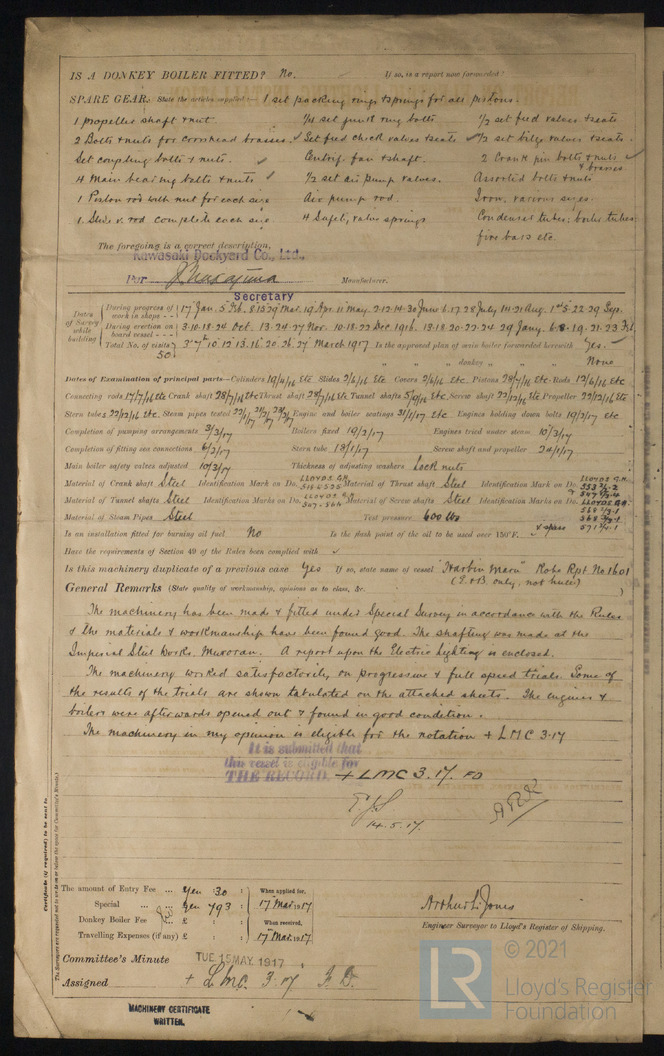 IS A DONKEY BOILER FITTED? No. If so, is a report now forwarded?
SPARE GEAR. State the articles supplied:— 1 set packing rings & springs for all pistons.
1 propeller shaft & nut. 1/4 set junk ring bolts 1/2 set feed valves & seats
2 Bolts & nuts for crosshead brasses. Set feed check valves & seats 1/2 set bilge valves & seats.
Set coupling bolts & nuts. Centrif. fan & shaft. 2 Crank pin bolts & nuts & brasses
4 Main bearing bolts & nuts 1/2 set air pump valves. Assorted bolts & nuts
1 Piston rod with nut for each size Air pump rod. Iron, various sizes.
1 Slide v. rod complete each size 4 Safety valve springs Condenser tubes; boiler tubes;
fire bars etc.
The foregoing is a correct description,
Kawasaki Dockyard Co., Ltd.,
Per Manufacturer.
Secretary
Dates of Survey while building
During progress of work in shops - - 17 Jan. 5 Feb. 8.15.29 Mar. 19 Apr. 11 May. 2.12.14.30 June 6.17.28 July, 14.21 Aug. 1st 5.22.29 Sep.
During erection on board vessel - - - 3.10.18.24 Oct. 13.24.27 Nov. 10.18.22 Dec. 1916. 13.18.20.22.24.29 Jany. 6.8.19.21.23 Feb.
Total No. of visits 50 3rd 7th 10.12.13.16.20.26.27 March 1917 Is the approved plan of main boiler forwarded herewith Yes.
" " " donkey " " " None
Dates of Examination of principal parts—Cylinders 19/4/16 etc Slides 2/6/16 etc Covers 2/6/16 etc. Pistons 28/7/16 etc Rods 12/6/16 etc
Connecting rods 17/7/16 etc Crank shaft 28/7/16 etc Thrust shaft 28/7/16 etc Tunnel shafts 5/9/16 etc. Screw shaft 22/12/16 etc Propeller 22/12/16 etc
Stern tube 22/12/16 etc. Steam pipes tested Engine and boiler seatings 31/1/17 etc. Engines holding down bolts 19/2/17 etc
Completion of pumping arrangements 3/3/17 Boilers fixed 19/2/17 Engines tried under steam 10/3/17
Completion of fitting sea connections 6/2/17 Stern tube 18/1/17 Screw shaft and propeller 24/1/17
Main boiler safety valves adjusted 10/3/17 Thickness of adjusting washers Lock nuts
Material of Crank shaft Steel Identification Mark on Do. LLOYDS Material of Thrust shaft Steel Identification Mark on Do. LLOYDS
Material of Tunnel shafts Steel Identification Marks on Do. LLOYDS Material of Screw shafts Steel Identification Marks on Do. LLOYDS
Material of Steam Pipes Steel Test pressure 600 lbs
Is an installation fitted for burning oil fuel No Is the flash point of the oil to be used over 150°F. ✓
Have the requirements of Section 49 of the Rules been complied with ✓
Is this machinery duplicate of a previous case Yes If so, state name of vessel "Harbin Maru" Kobe Rpt No. 1601
(E. & B. only, not hull)
General Remarks (State quality of workmanship, opinions as to class, &c.
The machinery has been made & fitted under Special Survey in accordance with the Rules
& the materials & workmanship have been found good. The shafting was made at the
Imperial Steel Works, Muroran. A report upon the Electric Lighting is enclosed.
The machinery worked satisfactorily on progressive & full speed trials. Some of
the results of the trials are shown tabulated on the attached sheets. The engines &
boilers were afterwards opened out & found in good condition.
The machinery in my opinion is eligible for the notation + LMC 3.17
It is submitted that
this vessel is eligible for
THE RECORD. + LMC 3.17. FD
14.5.17.
Certificate (if required) to be sent to
The Surveyors are requested not to write on or below the space for Committee's Minute.
The amount of Entry Fee ... Yen 30 : When applied for,
Special ... Yen 793 : 17 Mar. 1917
Donkey Boiler Fee ... £ : When received,
Travelling Expenses (if any) £ : 17 Mar. 1917
Arthur L. Jones
Engineer Surveyor to Lloyd's Register of Shipping.
Committee's Minute TUE. 15 MAY. 1917
Assigned + LMC. 3.17 F.D.
MACHINERY CERTIFICATE
WRITTEN.
LR © 2021
Lloyd's Register
Foundation